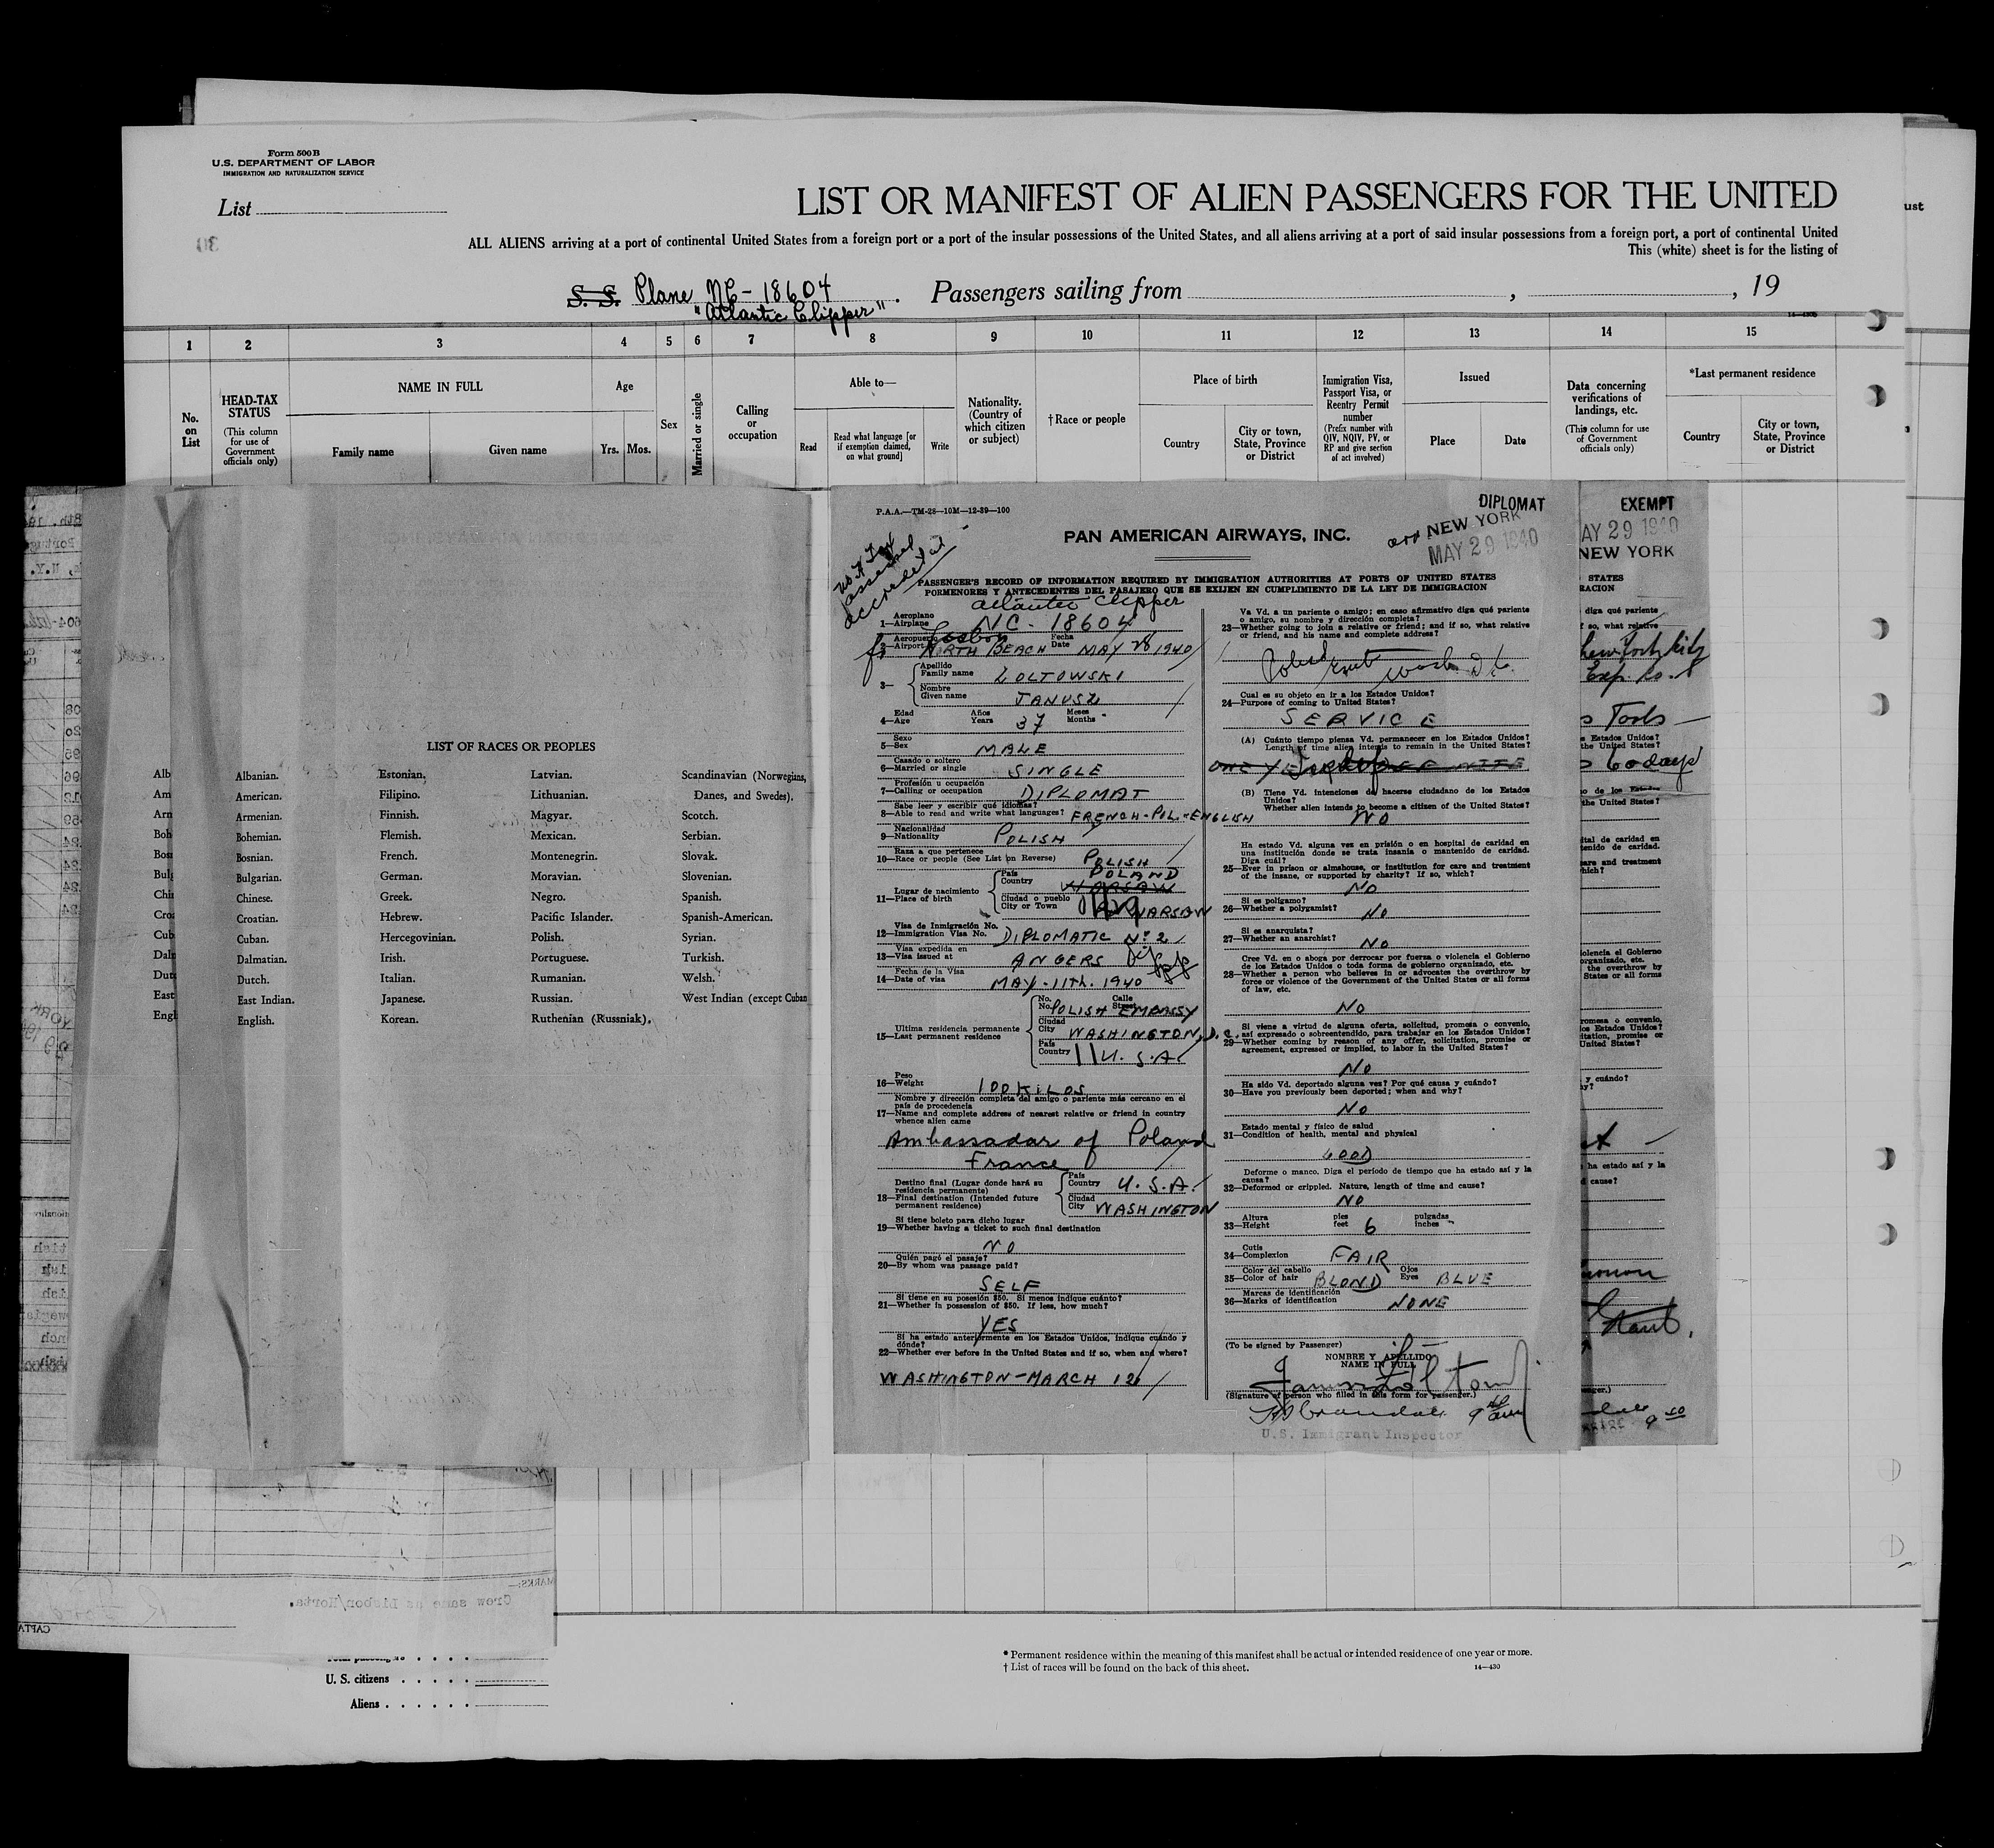 Form 500B
U.S. DEPARTMENT OF LABOR
IMMIGRATION AND NATURALIZATION SERVICE
List
LIST OR MANIFEST OF ALIEN PASSENGERS FOR THE UNITED
ALL ALIENS arriving at a port of continental United States from a foreign port or a port of the insular possessions of the United States, and all aliens arriving at a port of said insular possessions from a foreign port, a port of continental United
This (white) sheet is for the listing of
S. S. Plane NC-18604 . Passengers sailing from , , 19
"Atlantic Clipper"
1 2 3 4 5 6 7 8 9 10 11 12 13 14 15
No. on List
HEAD-TAX STATUS (This column for use of Government officials only)
NAME IN FULL
Family name Given name
Age
Yrs. Mos.
Sex
Married or single
Calling or occupation
Able to—
Read Read what language [or if exemption claimed, on what ground] Write
Nationality. (Country of which citizen or subject)
†Race or people
Place of birth
Country City or town, State, Province or District
Immigration Visa, Passport Visa, or Reentry Permit number (Prefix number with QIV, NQIV, PV, or RP and give section of act involved)
Issued
Place Date
Data concerning verifications of landings, etc. (This column for use of Government officials only)
*Last permanent residence
Country City or town, State, Province or District
LIST OF RACES OR PEOPLES
Albanian. Estonian. Latvian. Scandinavian (Norwegians,
American. Filipino. Lithuanian. Danes, and Swedes).
Armenian. Finnish. Magyar. Scotch.
Bohemian. Flemish. Mexican. Serbian.
Bosnian. French. Montenegrin. Slovak.
Bulgarian. German. Moravian. Slovenian.
Chinese. Greek. Negro. Spanish.
Croatian. Hebrew. Pacific Islander. Spanish-American.
Cuban. Hercegovinian. Polish. Syrian.
Dalmatian. Irish. Portuguese. Turkish.
Dutch. Italian. Rumanian. Welsh.
East Indian. Japanese. Russian. West Indian (except Cuban
English. Korean. Ruthenian (Russniak).
P.A.A.—TM-28—10M—12-39—100
DIPLOMAT
PAN AMERICAN AIRWAYS, INC.
arr NEW YORK
MAY 29 1940
PASSENGER'S RECORD OF INFORMATION REQUIRED BY IMMIGRATION AUTHORITIES AT PORTS OF UNITED STATES
PORMENORES Y ANTECEDENTES DEL PASAJERO QUE SE EXIJEN EN CUMPLIMIENTO DE LA LEY DE IMMIGRACION
Atlantic Clipper
Aeroplano
1—Airplane NC-18604
Aeropuerto Lisbon Fecha
2—Airport NORTH BEACH Date MAY 28 1940
3— Apellido
Family name ZOLTOWSKI
Nombre
Given name JANUSZ
Edad Años Meses
4—Age Years 37 Months -
Sexo
5—Sex MALE
Casado o soltero
6—Married or single SINGLE
Profesión u ocupación
7—Calling or occupation DIPLOMAT
Sabe leer y escribir qué idiomas?
8—Able to read and write what languages? FRENCH-POL.-ENGLISH
Nacionalidad
9—Nationality POLISH
Raza a que pertenece
10—Race or people (See List on Reverse) POLISH
11—Lugar de nacimiento
Place of birth
País
Country POLAND
WARSAW
Ciudad o pueblo
City or Town WARSAW
Visa de Inmigración No.
12—Immigration Visa No. DIPLOMATIC No 2
Visa expedida en
13—Visa issued at ANGERS
Fecha de la Visa
14—Date of visa MAY-11TH. 1940
Ultima residencia permanente
15—Last permanent residence
No. Calle
No. Street POLISH EMBASSY
Ciudad
City WASHINGTON, D.C.
País
Country U.S.A.
Peso
16—Weight 100 KILOS
Nombre y dirección completa del amigo o pariente más cercano en el país de procedencia
17—Name and complete address of nearest relative or friend in country whence alien came
Ambassador of Poland
France
Destino final (Lugar donde hará su residencia permanente)
18—Final destination (Intended future permanent residence)
País
Country U.S.A.
Ciudad
City WASHINGTON
Si tiene boleto para dicho lugar
19—Whether having a ticket to such final destination
NO
Quién pagó el pasaje?
20—By whom was passage paid?
SELF
Si tiene en su posesión $50. Si menos indique cuánto?
21—Whether in possession of $50. If less, how much?
YES
Si ha estado anteriormente en los Estados Unidos, indique cuándo y dónde?
22—Whether ever before in the United States and if so, when and where?
WASHINGTON-MARCH 12
Va Vd. a un pariente o amigo; en caso afirmativo diga qué pariente o amigo, su nombre y dirección completa?
23—Whether going to join a relative or friend; and if so, what relative or friend, and his name and complete address?
Wash D.C.
Cual es su objeto en ir a los Estados Unidos?
24—Purpose of coming to United States?
SERVICE
(A) Cuánto tiempo piensa Vd. permanecer en los Estados Unidos?
Length of time alien intends to remain in the United States?
(B) Tiene Vd. intenciones de hacerse ciudadano de los Estados Unidos?
Whether alien intends to become a citizen of the United States?
NO
Ha estado Vd. alguna vez en prisión o en hospital de caridad en una institución donde se trata insania o mantenido de caridad. Diga cuál?
25—Ever in prison or almshouse, or institution for care and treatment of the insane, or supported by charity? If so, which?
NO
Si es poligamo?
26—Whether a polygamist? NO
Si es anarquista?
27—Whether an anarchist? NO
Cree Vd. en o aboga por derrocar por fuerza o violencia el Gobierno de los Estados Unidos o toda forma de gobierno organizado, etc.
28—Whether a person who believes in or advocates the overthrow by force or violence of the Government of the United States or all forms of law, etc.
NO
Si viene a virtud de alguna oferta, solicitud, promesa o convenio, así expresado o sobreentendido, para trabajar en los Estados Unidos?
29—Whether coming by reason of any offer, solicitation, promise or agreement, expressed or implied, to labor in the United States?
NO
Ha sido Vd. deportado alguna vez? Por qué causa y cuándo?
30—Have you previously been deported; when and why?
NO
Estado mental y físico de salud
31—Condition of health, mental and physical
GOOD
Deforme o manco. Diga el período de tiempo que ha estado así y la causa?
32—Deformed or crippled. Nature, length of time and cause?
NO
Altura pies pulgadas
33—Height feet 6 inches -
Cutis
34—Complexion FAIR
Color del cabello Ojos
35—Color of hair BLOND Eyes BLUE
Marcas de identificación
36—Marks of identification NONE
(To be signed by Passenger)
NOMBRE Y APELLIDO
NAME IN FULL
(Signature of person who filled in this form for passenger.)
U.S. Immigrant Inspector
EXEMPT
AY 29 1940
NEW YORK
60 days
Crew same as Lisbon/Horta.
U. S. citizens
Aliens
* Permanent residence within the meaning of this manifest shall be actual or intended residence of one year or more.
† List of races will be found on the back of this sheet. 14—430